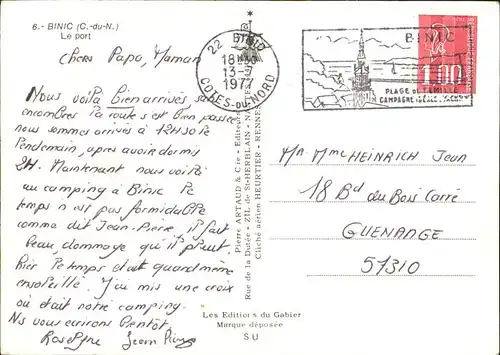 6.- BINIC (C.-du-N.)
Le port
Chers Papa, Maman
Nous voilà Bien arrivés sans
encombres la route s'est bien passée
nous sommes arrivés à 12H30 le
lendemain, après avoir dormis
2H. Maintenant nous voilà
au camping à Binic le
temps n'est pas formidable
comme dit Jean-Pierre, il fait
beau, dommage qu'il pleut.
Hier le temps était quand même
ensoleillé. J'ai mis une croix
où était notre camping.
Ns vous écrirons bientôt.
Roselyne Jean Pierre
22 BINIC
18H30
13-7
1977
COTES-DU-NORD
BINIC
PLAGE DE FAMILLE
CAMPAGNE IDÉALE
1,00
Pierre ARTAUD & Cie - Editeurs
Rue de la Dutée - ZIL de St-HERBLAIN - NA
Cliché aérien HEURTIER - RENNES
Mr Mme HEINRICH Jean
18 Bd du Bois Carré
GUENANGE
57310
Les Editions du Gabier
Marque déposée
SU